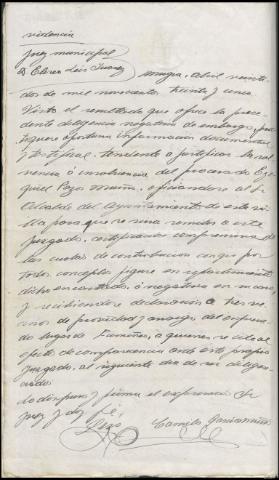 Providencia
Juez municipal
D. Eliseo Leis Juarez Mugia, Abril veinte
dos de mil novecientos treinta y cinco.
Visto el resultado que ofrece la prece-
dente diligencia negativa de embargo, prac-
tiquese oportuna información documental
y testifical, tendente a justificar la sol-
vencia ó insolvencia del procesado Eze-
quiel Pazos Muiña, oficiandose al Sr.
Alcalde del Ayuntamiento de esta vi-
lla para que se sirva remitir a este
juzgado, certificación comprensiva de
las cuotas de contribución con que por
todos conceptos figure en repartimiento
dicho encartado, ó negativa en su caso,
y recibiendose declaración a tres ve-
cinos de probidad y arraigo del expresa-
do lugar de a quienes se cite al
efecto de comparecencia ante este propio
juzgado, al siguiente dia de ser diligen-
ciados
Lo dispuso y firma el expresado Sr.
Juez y doy fé.
Leis Camilo